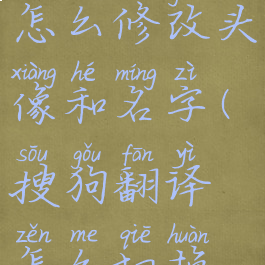 怎么修改头
xiàng hé míng zì
像和名字(
sōu gǒu fān yì
搜狗翻译
zěn me qiē huàn
怎么切换